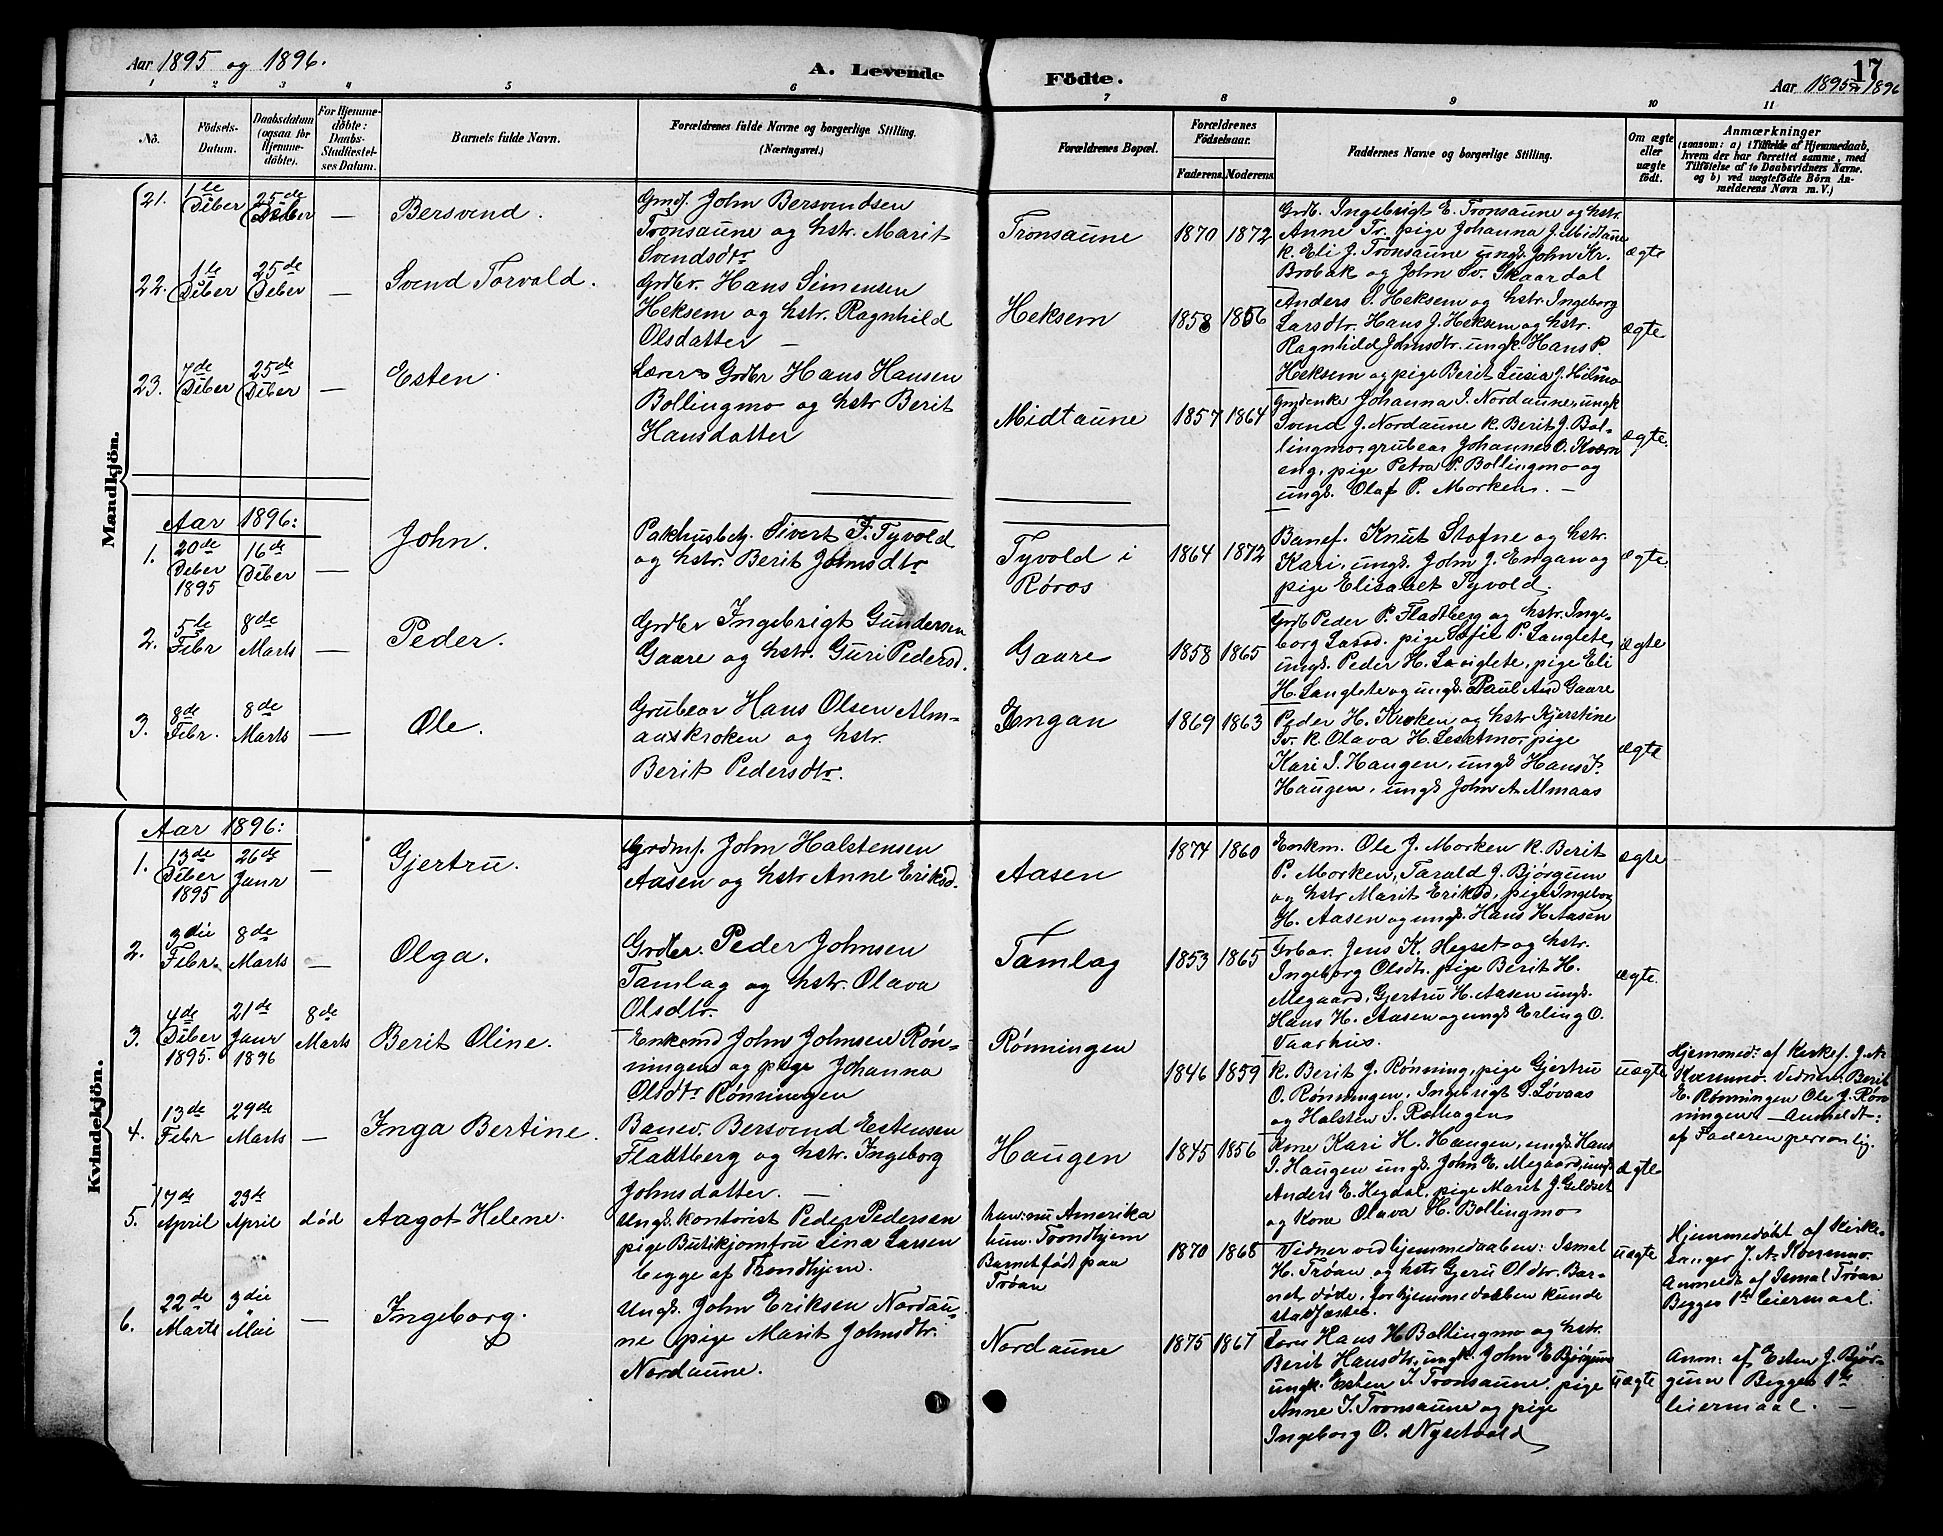 Aar 1895 og 1896.
A. Levende
Födte.
17
Aar 1895 1896
1 2 3 4 5 6 7 8 9 10 11
No.
Födsels-
Datum.
Daabsdatum
(ogsaa for
Hjemme-
döbte).
For Hjemme-
döbte:
Daabs-
Stadfæstel-
ses Datum.
Barnets fulde Navn.
Forældrenes fulde Navne og borgerlige Stilling.
(Næringsvei.)
Forældrenes Bopæl.
Forældrenes
Födselsaar.
Faderens. Moderens.
Faddernes Navne og borgerlige Stilling.
Om ægte
eller
uægte
födt.
Anmærkninger
(saasom: a) i Tilfælde af Hjemmedaab,
hvem der har forrettet samme, med
Tilföielse af to Daabsvidners Navne.
og b) ved uægtefödte Börn An-
melderens Navn m. V.)
Mandkjön.
21.
1te
Diber
25de
Diber
—
Bersvend.
Gmd. John Bersvendsen
Tronsaune og hstr. Marit
Svendsdtr
Tronsaune
1870 1872
Grb. Ingebrigt E. Tronsaune og hstr.
Anne Tr. pige Johanna J. Midtaune
k. Eli J. Tronsaune ungk. John Kr.
Brobak og John Sv. Skaardal
ægte
22.
1te
Diber
25de
Diber
—
Svend Torvald.
Grdbr. Hans Simensen
Heksem og hstr. Ragnhild
Olsdatter —
Heksem
1858 1856
Anders S. Heksem og hstr. Ingeborg
Larsdtr. Hans J. Heksem og hstr.
Ragnhild Johnsdtr. ungk. Hans P.
Heksem og pige Berit Lusia J. Hilmo
ægte
23.
7de
Diber
25de
Diber
—
Esten.
Lærer & Grdbr Hans Hansen
Bollingmo og hstr Berit
Hansdatter
Midtaune
1857 1864
Gmdenke Johanna I. Nordaune, ungk
Svend J. Nordaune k. Berit J. Bol-
lingmo, grubear Johannes O. Kværn
eng, pige Petra P. Bollingmo og
ungk. Olaf P. Morken. —
ægte.
Aar 1896:
1.
20de
Deber
1895
16de
Diber
—
John.
Pakhusbetj. Sivert J. Tyvold
og hstr. Berit Johnsdtr
Tyvold i
Røros
1864 1872
Banef. Knut Stofne og hstr.
Kari, ungk. John J. Engan og
pige Elisabet Tyvold.
ægte
2.
5te
Febr
8de
Marts
—
Peder.
Grdbr Ingebrigt Gundersen
Gaare og hstr. Guri Pedersd.
Gaare
1858 1865
Grdb Peder P. Fladtberg og hstr. Inge-
borg Larsd. pige Sofie P. Langlete,
ungk. Peder H. Langlete, pige Eli
H. Langlete og ungk. Paul And Gaare
ægte
3.
8de
Febr.
8de
Marts
—
Ole.
Grubear Hans Olsen Alm-
aaskroken og hstr.
Berit Pedersdtr.
Engan
1869 1863
Peder H. Kroken og hstr Kjerstine
Sv. k. Olava H. Lesetmo, pige
Kari I. Haugen, ungk Hans I.
Haugen, ungk John A. Almaas
ægte
Kvindekjön.
Aar 1896:
1.
13de
Diber
1895
26de
Janr
—
Gjertru.
Grdmf. John Halstensen
Aasen og hstr Anne Eriksd.
Aasen
1874 1860
Enkm. Ole J. Morken k. Berit
P. Morken, Tarald J. Bjørgum
og hstr Marit Eriksd, pige Ingeborg
H. Aasen og ungk. Hans H. Aasen
ægte
2.
3die
Febr.
8de
Marts
—
Olga.
Grdbr. Peder Johnsen
Tamlag og hstr. Olava
Olsdtr.
Tamlag
1853 1865
Grbar. Jens K. Hegset og hstr.
Ingeborg Olsdtr, pige Berit H.
Megaard, Gjertru H. Aasen ungk.
Hans H. Aasen og ungk Erling O.
Vaarhus.
ægte.
3.
4de
Diber
1895.
21de
Janr
1896
8de
Marts
Berit Oline.
Enkmd John Johnsen Røn-
ningen og pige Johanna
Olsdtr Rønningen
Rønningen
1846 1859
k. Berit J. Rønning, pige Gjertru
O. Rønningen, Ingebrigt S. Løvaas
og Halsten S. Ramhagen
uægte
Hjemmed: af Kirkes. J. A.
Kversmo. Vidner: Berit
E. Rønningen Ole J. Røn-
ningen — Anmeldt:
af Faderen personlig.
4.
13de
Febr
29de
Marts
—
Inga Bertine.
Banev. Bersvend Estensen
Fladtberg og hstr. Ingeborg
Johnsdatter. —
Haugen
1845 1856
Kone Kari H. Haugen, ungk Hans
I. Haugen ungk. John E. Megaard, ungk
Anders E. Hegdal, pige Marit J. Gildset
og Kone Olava H. Bollingmo
ægte
5.
17de
April
23de
April
død
Aagot Helene.
Ungk. kontorist Peder Pedersen
pige Butikjomfru Lina Larsen
begge af Trondhjem.
han: nu Amerika
hun. Trondhjem
Barnet født paa
Trøan
1870 1868
Vidner ved hjemmedaaben: Ismal
H. Trøan og hstr Gjeru Oldtr. Bar-
net døde, før hjemmedaaben kunde
stadfæstes.
uægte
Hjemmedøbt af Kirke-
sanger J. A. Kversmo.
Anmeldt af Ismal Trøan
Begges 1ste leiermaal.
6.
22de
Marts
3die
Mai
—
Ingeborg.
Ungk. John Eriksen Nordau-
ne pige Marit Johnsdtr.
Nordaune.
Nordaune
1875 1867
Lærer Hans H Bollingmo og hstr.
Berit Hansdtr, ungk. John E Bjørgum
ungk. Esten I. Tronsaune, pige
Anne I. Tronsaune og pige
Ingeborg O. Nysetvold
uægte
Anm: af Esten J. Bjør-
gum Begges 1ste
leiermaal. —